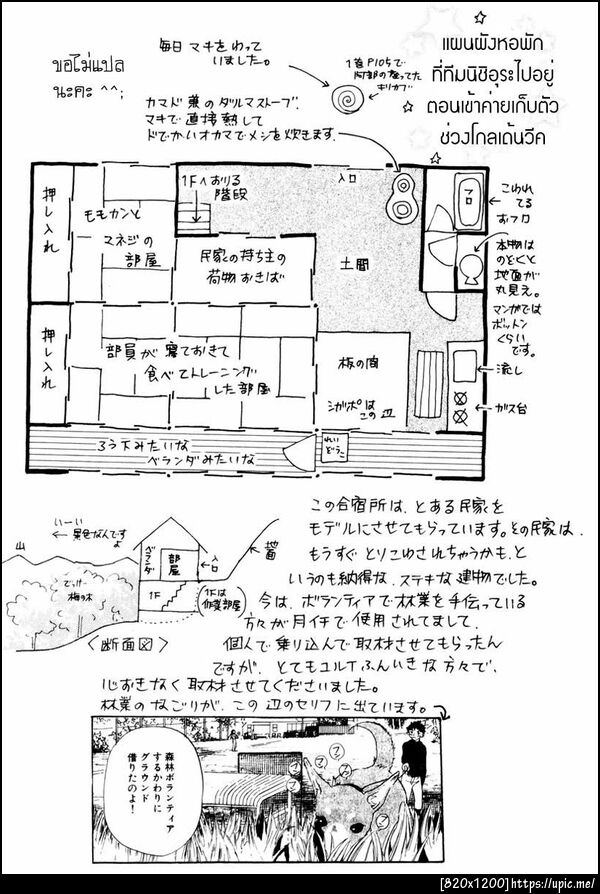 毎日マキをわって
いました。
1首P105で
阿部の座ってた
キリカブ
แผนผังหอพัก
ที่ทีมนิชิอุระไปอยู่
ตอนเข้าค่ายเก็บตัว
ช่วงโกลเด้นวีค
ขอไม่แปล
นะคะ ^^;
カマド兼のダルマストーブ。
マキで直接熱して
ドでかいオカマでメシを炊きます。
押し入れ
モモカンと
マネジの
部屋
1Fへおりる
階段
入口
民家の持ち主の
荷物おきば
土間
フロ
こわれ
てる
おフロ
本物は
のぞくと
地面が
丸見え。
マンガでは
ボットン
くらい
です。
流し
ガス台
押し入れ
部員が寝ておきて
食べてトレーニング
した部屋
板の間
シガポは
この辺
ろう下みたいな
ベランダみたいな
れい
ぞうこ
いーい
景色なんです
よ
山
でっけー
梅の木
ベランダ
部屋
入口
地面
1F
1Fは
作業部屋
〈断面図〉
この合宿所は、とある民家を
モデルにさせてもらっています。その民家は、
もうすぐとりこわされちゃうかも、と
いうのも納得な、ステキな建物でした。
今は、ボランティアで林業を手伝っている
方々が月イチで使用されてまして、
個人で乗り込んで取材させてもらったん
ですが、とてもユルイふんいきな方々で、
心おきなく取材させてくださいました。
林業のなごりが、この辺のセリフに出ています。
森林ボランティア
するかわりに
グラウンド
借りたのよ!
[820x1200]https://upic.me/